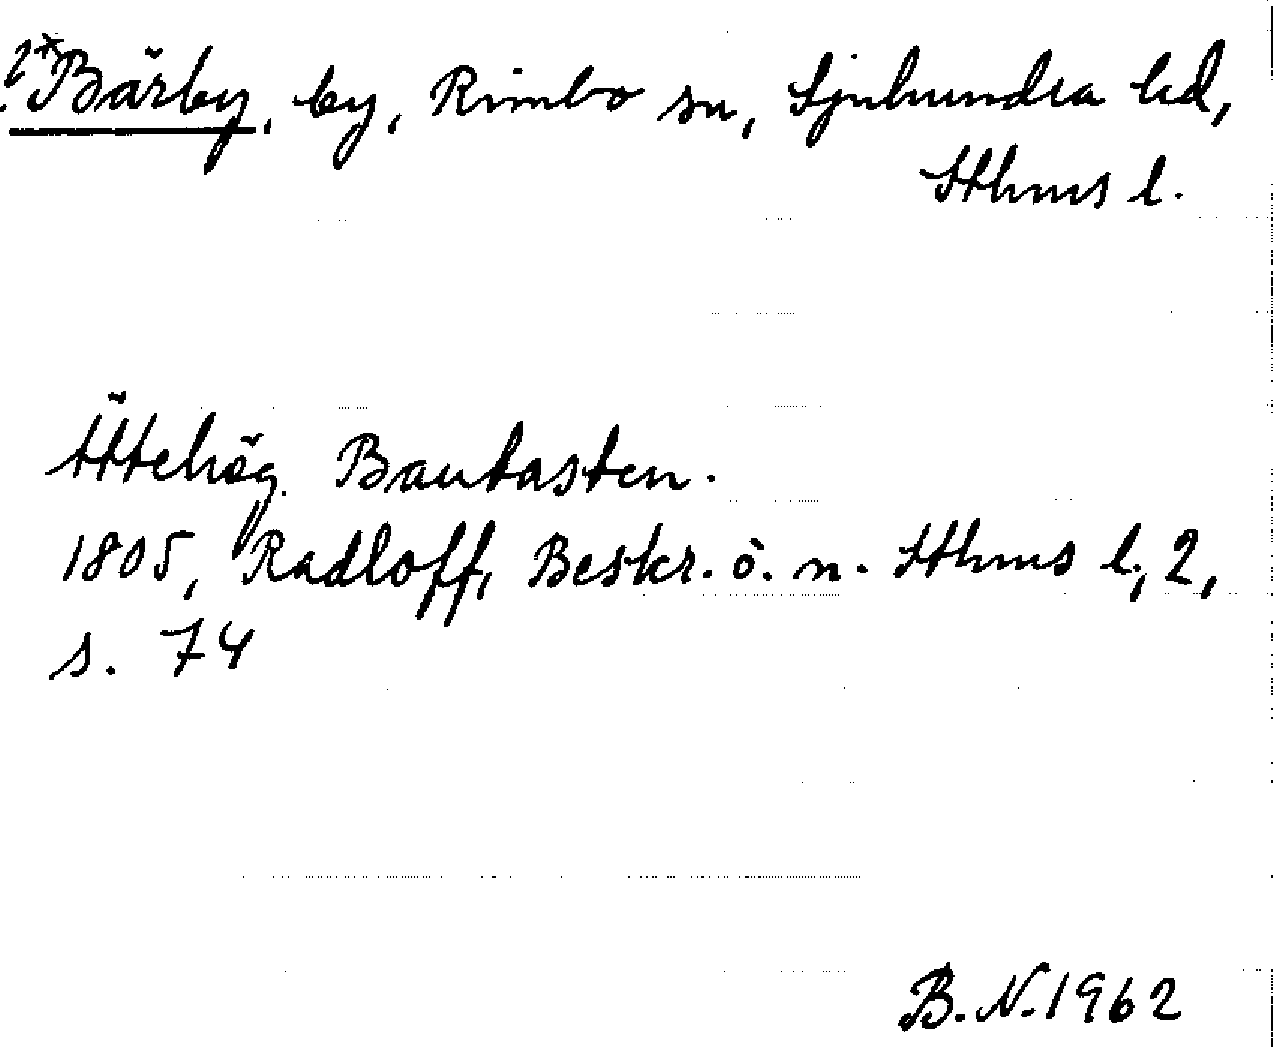 ?*Bärby, by, Rimbo sn, Sjuhundra hd,
Sthms l.
Ättehög. Bautasten.
1805, Radloff, Beskr. ö. n. Sthms l., 2,
s. 74
B. N. 1962